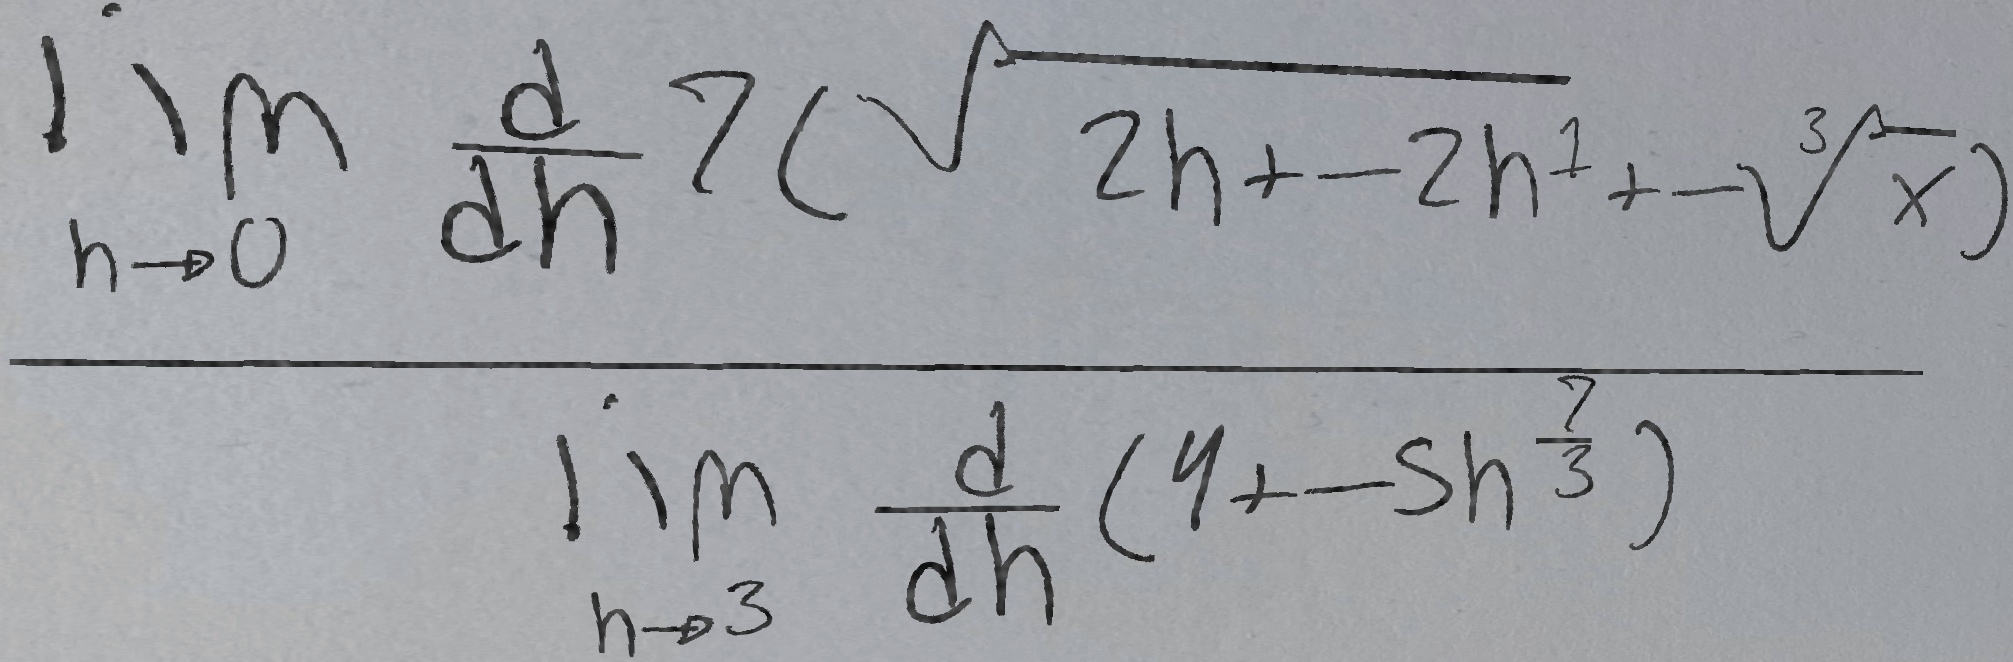 \frac{\lim_{h \to 0} \frac{d}{dh} 7(\sqrt{2h + -2h^1} + -\sqrt[3]{x})}{\lim_{h \to 3} \frac{d}{dh} (4 + -5h^{\frac{7}{3}})}